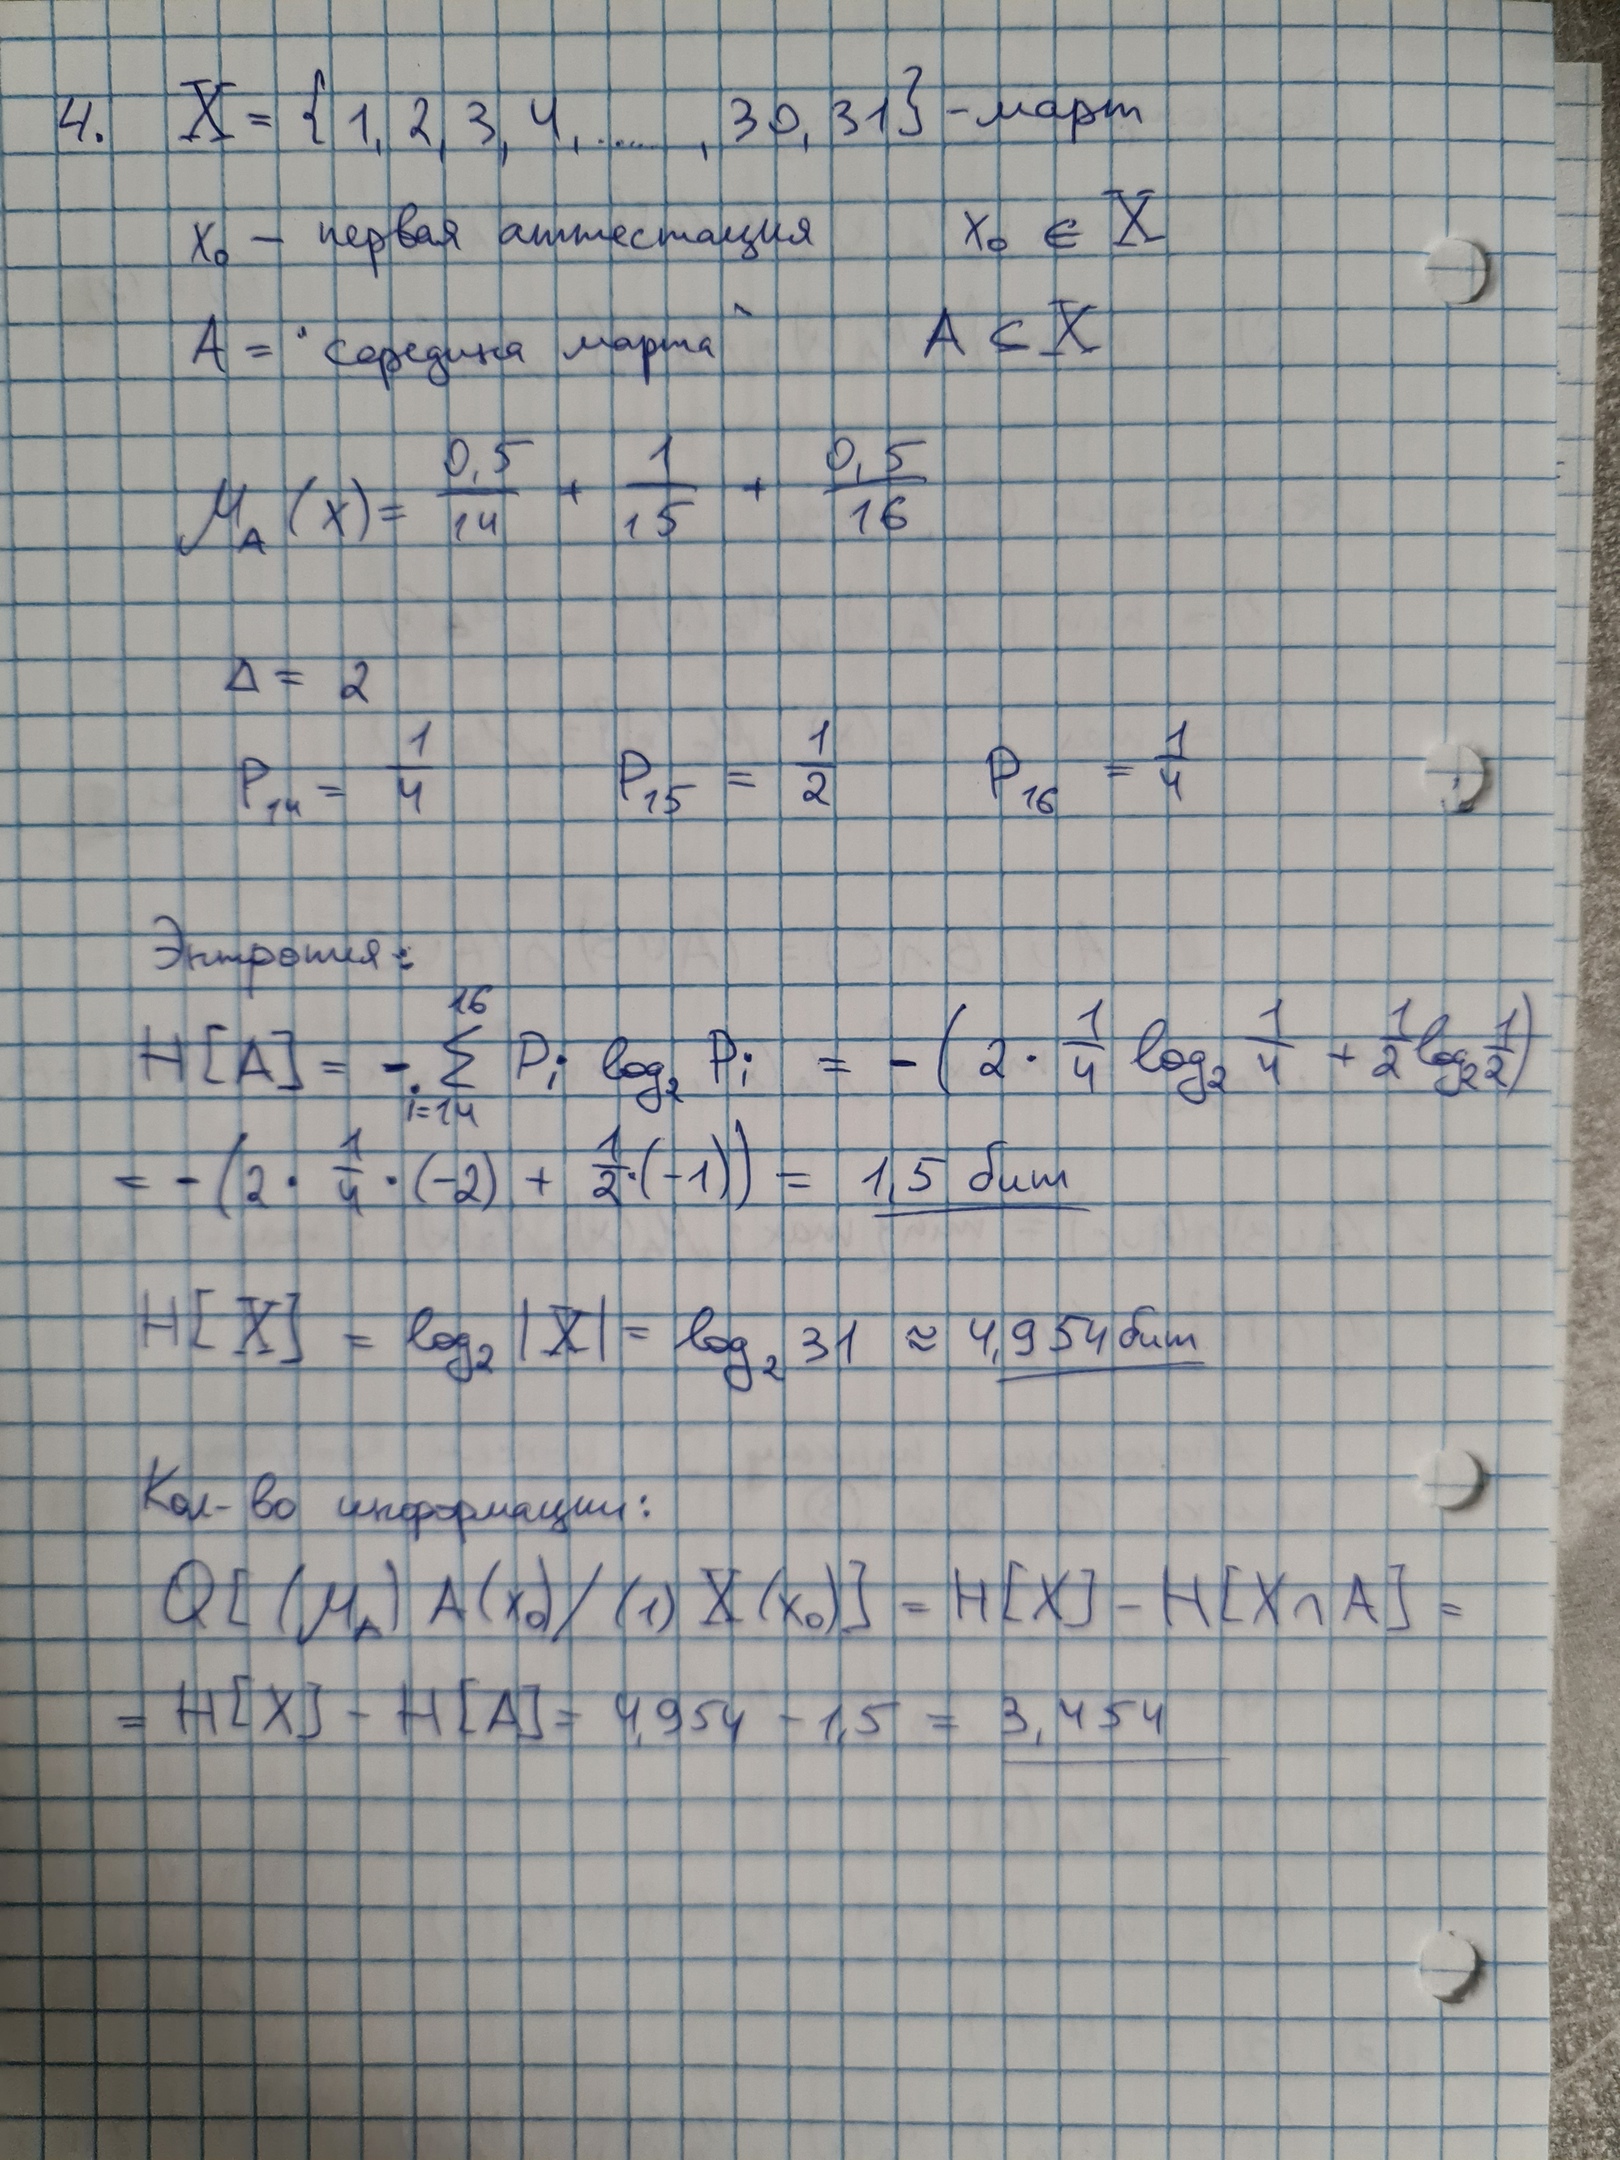 4. X = {1, 2, 3, 4, ....., 30, 31} - март
x₀ - первая аттестация x₀ ∈ X
A = "середина марта" A ⊆ X
μ_A (x) = 0,5/14 + 1/15 + 0,5/16
Δ = 2
P₁₄ = 1/4 P₁₅ = 1/2 P₁₆ = 1/4
Энтропия:
H[A] = - ∑_{i=14}^{16} Pᵢ log₂ Pᵢ = - (2 · 1/4 log₂ 1/4 + 1/2 log₂ 1/2)
= - (2 · 1/4 · (-2) + 1/2 · (-1)) = 1,5 бит
H[X] = log₂ |X| = log₂ 31 ≈ 4,954 бит
Кол-во информации:
Q[(μ_A) A(x₀) / (1) X(x₀)] = H[X] - H[X ∩ A] =
= H[X] - H[A] = 4,954 - 1,5 = 3,454